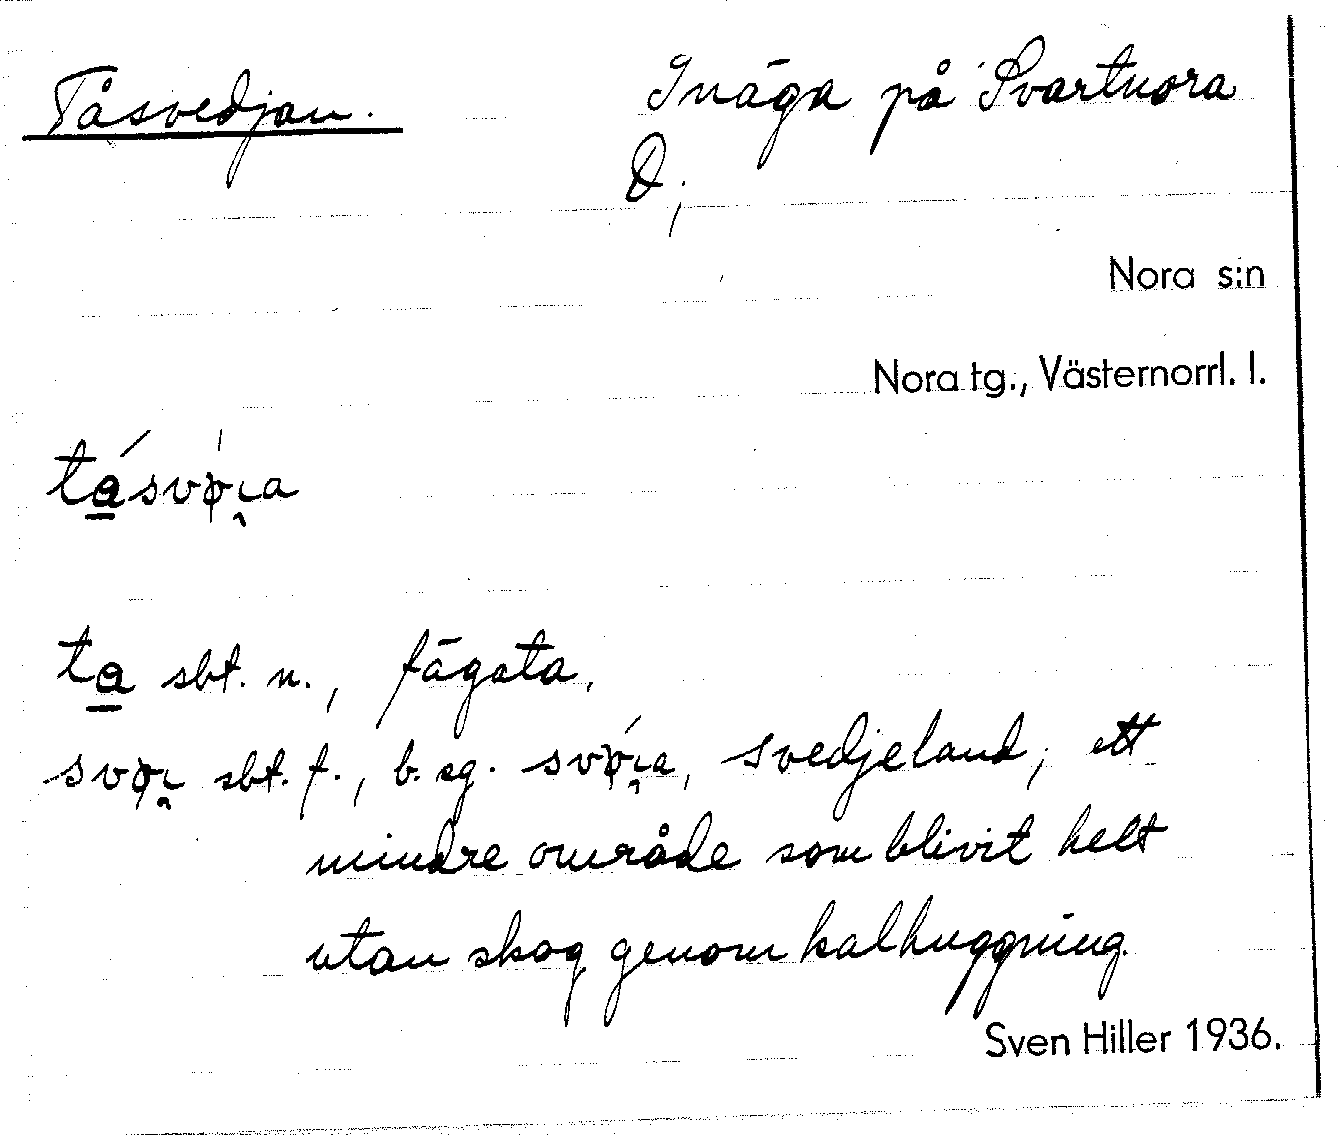 Tåsvedjan. Inäga på Svartnora
D;
Nora s:n
Nora tg., Västernorrl. l.
ta̲´svø̍ɩ̯a
ta̲ sbt. n., fägata,
svøɩ̯ sbt. f., b. sg. svǿɩ̯a, svedjeland; ett
mindre område som blivit helt
utan skog genom kalhuggning.
Sven Hiller 1936.